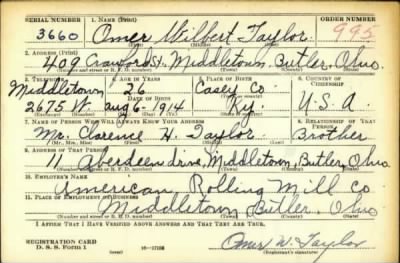 SERIAL NUMBER 1. NAME (Print) ORDER NUMBER
3660 Omer Wilbert Taylor 995
2. ADDRESS (Print)
409 Crawford St. Middletown, Butler, Ohio.
(Number and street or R. F. D. number) (Town) (County) (State)
3. TELEPHONE 4. AGE IN YEARS 5. PLACE OF BIRTH 6. COUNTRY OF CITIZENSHIP
Middletown 26 Casey Co.
DATE OF BIRTH
2675 W. Aug 6-1914 Ky. U.S.A
7. NAME OF PERSON WHO WILL ALWAYS KNOW YOUR ADDRESS 8. RELATIONSHIP OF THAT PERSON
Mr. Clarence H. Taylor Brother
(Mr., Mrs., Miss) (First) (Middle) (Last)
9. ADDRESS OF THAT PERSON
11 Aberdeen drive, Middletown, Butler, Ohio
(Number and street or R. F. D. number) (Town) (County) (State)
10. EMPLOYER'S NAME
American Rolling Mill Co
11. PLACE OF EMPLOYMENT OR BUSINESS
Middletown Butler, Ohio
(Number and street or R. F. D. number) (Town) (County) (State)
I AFFIRM THAT I HAVE VERIFIED ABOVE ANSWERS AND THAT THEY ARE TRUE.
REGISTRATION CARD
D. S. S. Form 1 Omer W. Taylor
(Registrant's signature)